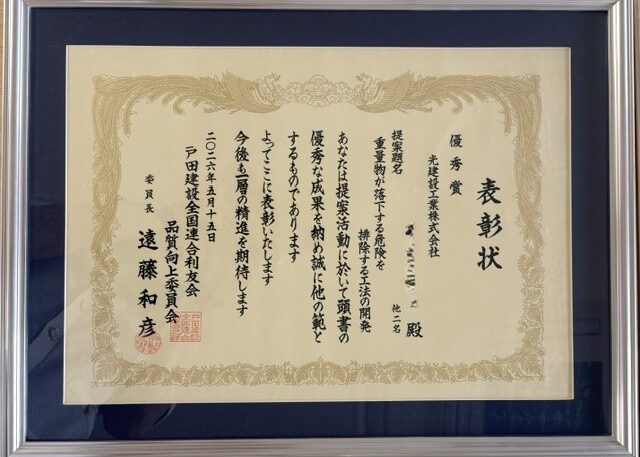 表彰状
優秀賞
光建設工業株式会社
他二名
殿
提案題名
重量物が落下する危険を
排除する工法の開発
あなたは提案活動に於いて頭書の
優秀な成果を納め誠に他の範と
するものであります
よってここに表彰いたします
今後も一層の精進を期待します
二〇二六年五月十五日
戸田建設全国連合利友会
品質向上委員会
委員長 遠藤和彦